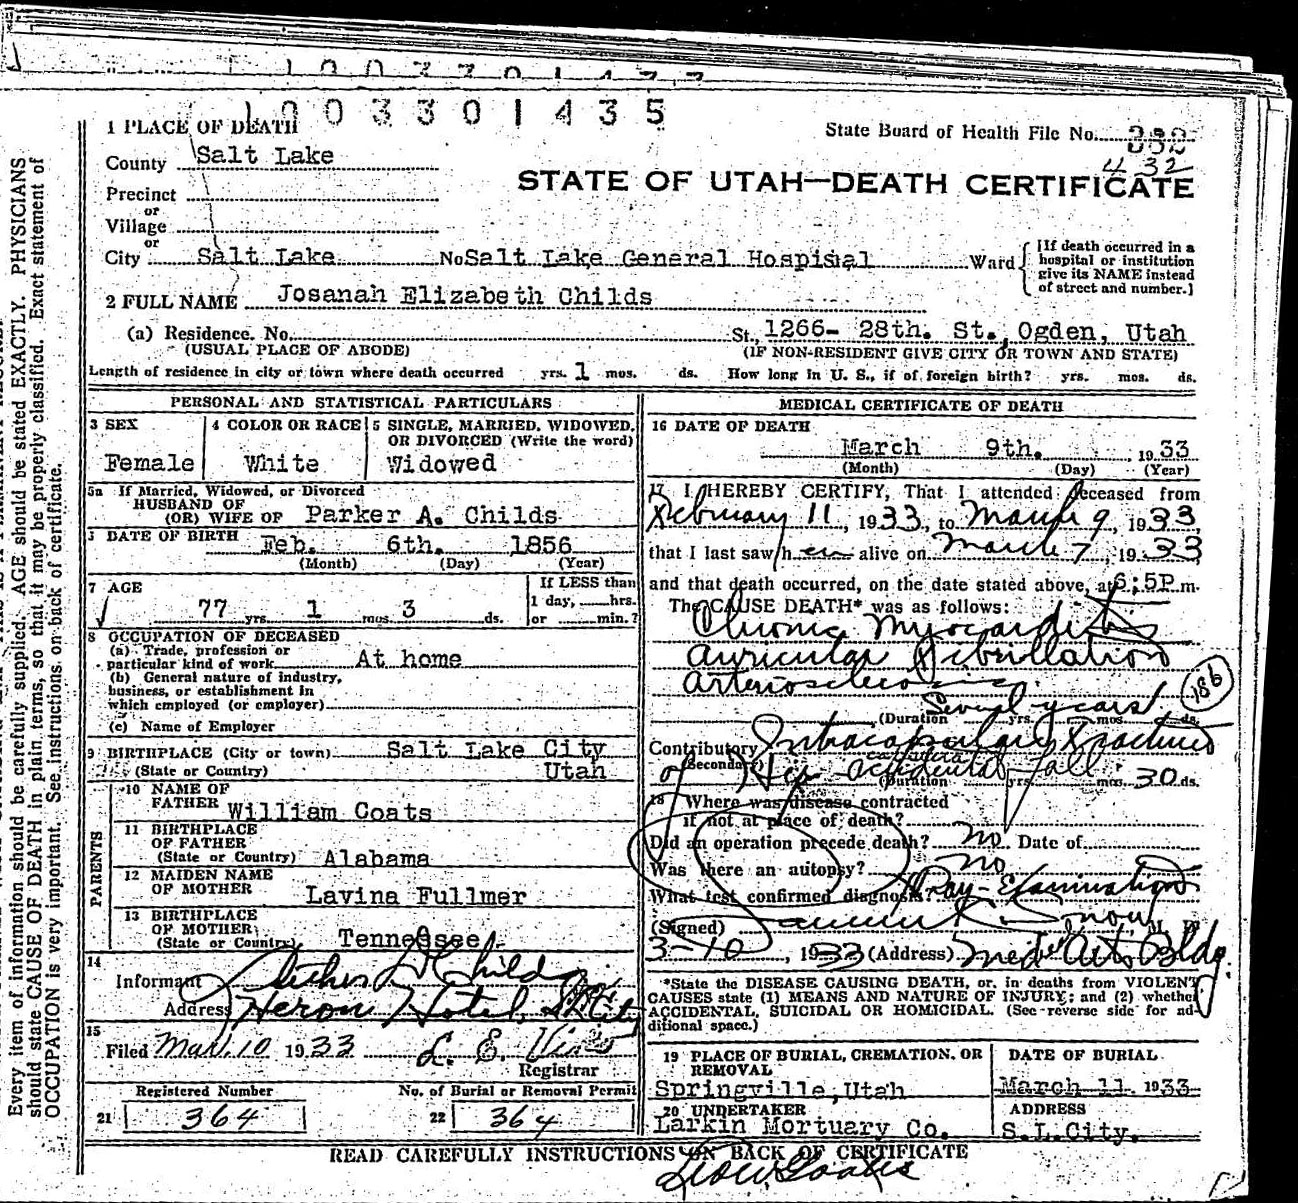 1003301435
1 PLACE OF DEATH
State Board of Health File No. 332
432
County Salt Lake
STATE OF UTAH—DEATH CERTIFICATE
Precinct
or
Village
or
City Salt Lake No Salt Lake General Hospisal Ward
[If death occurred in a hospital or institution give its NAME instead of street and number.]
2 FULL NAME Josanah Elizabeth Childs
(a) Residence. No. St., 1266- 28th. St., Ogden, Utah
(USUAL PLACE OF ABODE) (IF NON-RESIDENT GIVE CITY OR TOWN AND STATE)
Length of residence in city or town where death occurred yrs. 1 mos. ds. How long in U. S., if of foreign birth? yrs. mos. ds.
PERSONAL AND STATISTICAL PARTICULARS
3 SEX
Female
4 COLOR OR RACE
White
5 SINGLE, MARRIED, WIDOWED, OR DIVORCED (Write the word)
Widowed
5a If Married, Widowed, or Divorced
HUSBAND OF
(OR) WIFE OF Parker A. Childs
DATE OF BIRTH Feb. 6th. 1856
(Month) (Day) (Year)
7 AGE
77 yrs. 1 mos. 3 ds.
If LESS than
1 day, hrs.
or min.?
8 OCCUPATION OF DECEASED
(a) Trade, profession or
particular kind of work At home
(b) General nature of industry,
business, or establishment in
which employed (or employer)
(c) Name of Employer
9 BIRTHPLACE (City or town) Salt Lake City
(State or Country) Utah
PARENTS
10 NAME OF
FATHER William Coats
11 BIRTHPLACE
OF FATHER
(State or Country) Alabama
12 MAIDEN NAME
OF MOTHER Lavina Fullmer
13 BIRTHPLACE
OF MOTHER
(State or Country) Tennessee
14
Informant Childs
Address Heron Hotel, S L City
15
Filed Mar. 10 1933 L. E.
Registrar
Registered Number
21 364
No. of Burial or Removal Permit
22 364
MEDICAL CERTIFICATE OF DEATH
16 DATE OF DEATH
March 9th. 1933
(Month) (Day) (Year)
17 I HEREBY CERTIFY, That I attended deceased from
February 11, 1933, to March 9, 1933,
that I last saw her alive on March 7, 1933
and that death occurred, on the date stated above, at 6:5P m.
The CAUSE DEATH* was as follows:
Chronic Myocarditis
Auricular Fibrillation
Arteriosclerosis
186
Several years
(Duration yrs. mos. ds.
Contributory Intracapsular Fracture
(Secondary) of Hip accidental fall
(Duration yrs. mos. 30 ds.
18 Where was disease contracted
if not at place of death?
Did an operation precede death? no Date of
Was there an autopsy? no
What test confirmed diagnosis? X Ray-Examination
(Signed) Snow M. D.
3-10, 1933 (Address) Med Arts Bldg.
*State the DISEASE CAUSING DEATH, or, in deaths from VIOLENT
CAUSES state (1) MEANS AND NATURE OF INJURY; and (2) whether
ACCIDENTAL, SUICIDAL OR HOMICIDAL. (See reverse side for ad-
ditional space.)
19 PLACE OF BURIAL, CREMATION, OR
REMOVAL
Springville, Utah
DATE OF BURIAL
March 11 1933
20 UNDERTAKER
Larkin Mortuary Co.
ADDRESS
S.L.City.
READ CAREFULLY INSTRUCTIONS ON BACK OF CERTIFICATE
Every item of information should be carefully supplied. AGE should be stated EXACTLY. PHYSICIANS
should state CAUSE OF DEATH in plain terms, so that it may be properly classified. Exact statement of
OCCUPATION is very important. See instructions on back of certificate.